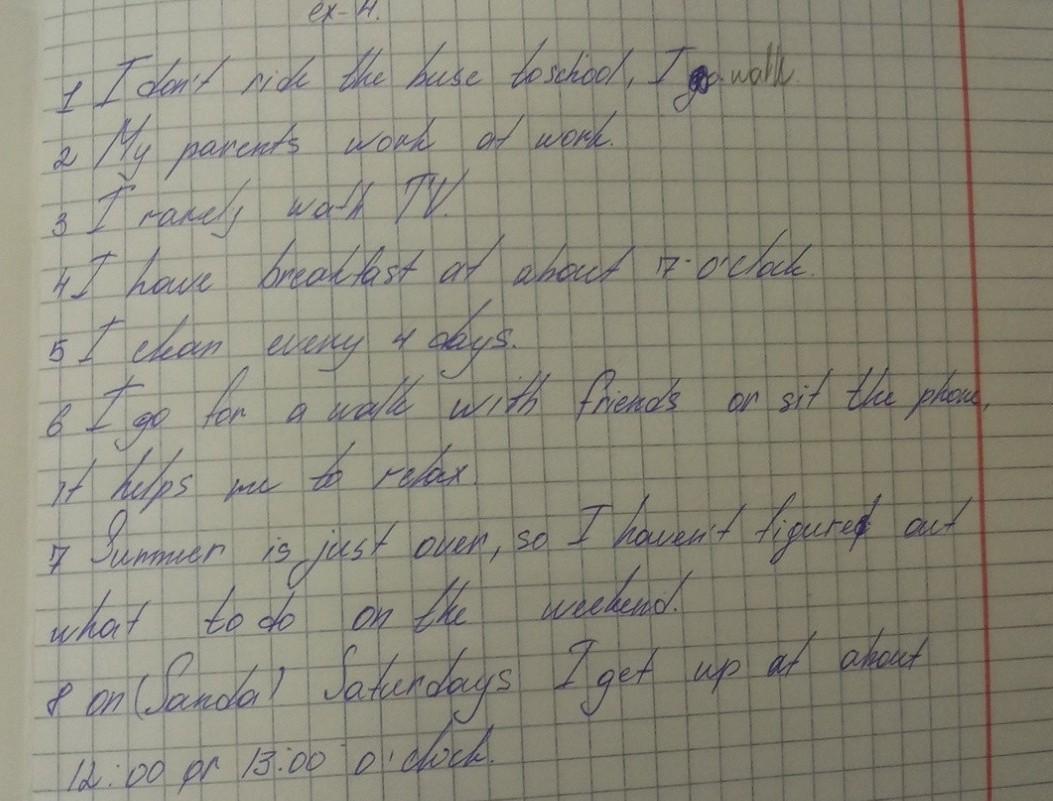 ex-4.
1 I don't ride the buse to school, I go walk.
2 My parents work at work.
3 I rarely wath TV.
4 I have breakfast at about 7 o'clock.
5 I clean every 4 days.
6 I go for a walk with friends or sit the phone,
it helps me to relax.
7 Summer is just over, so I haven't figured out
what to do on the weekend.
8 on (Sanda) Saturdays I get up at about
12:00 or 13:00 o'clock.